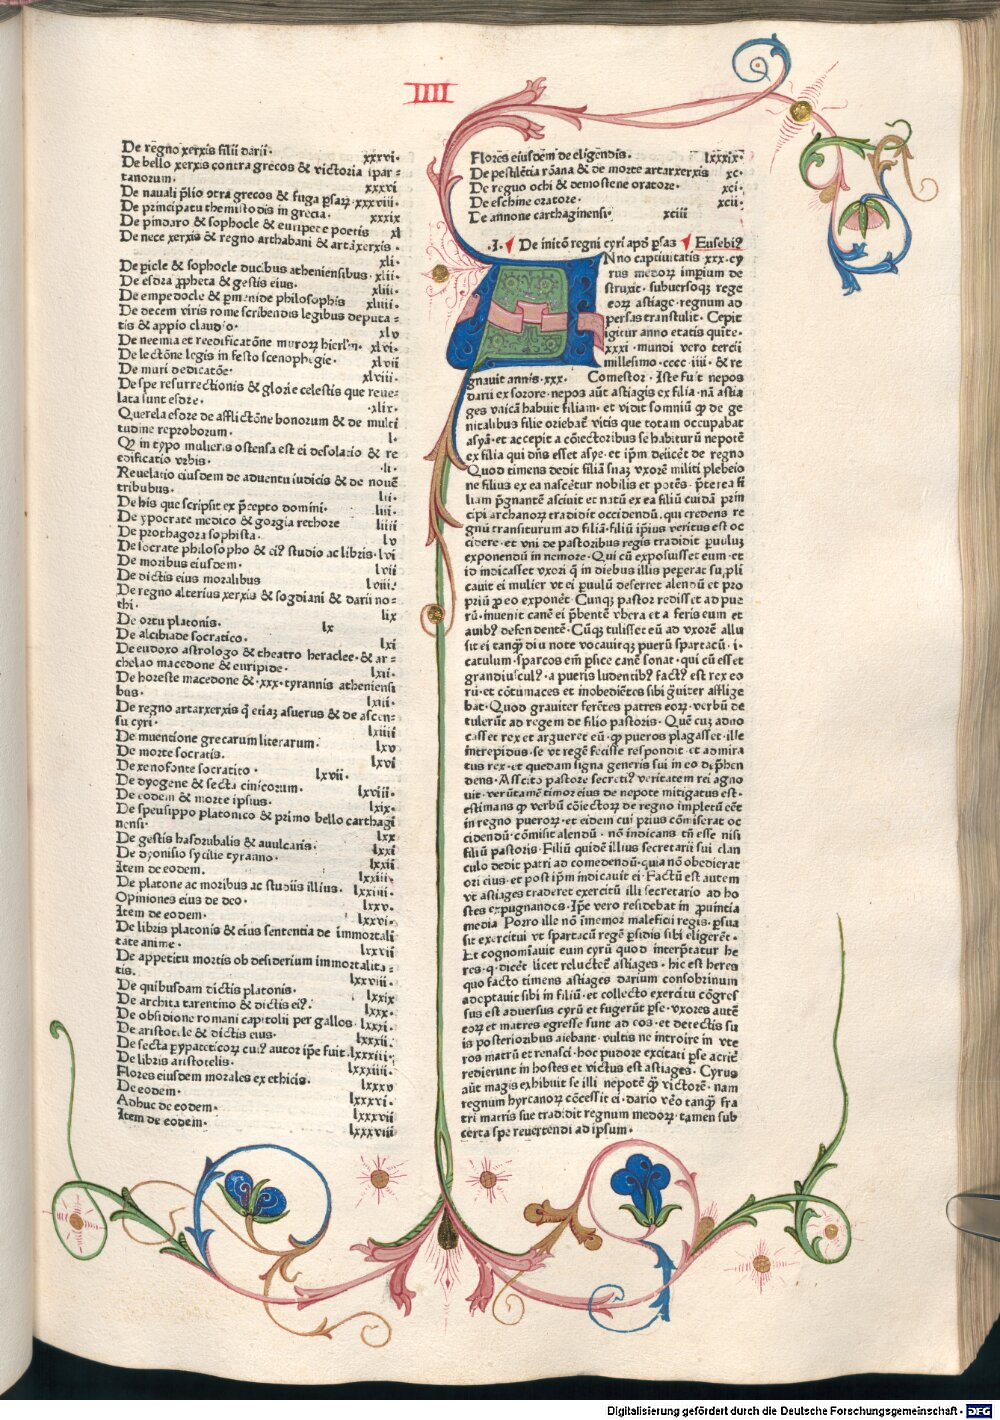 IIII
De regno xerxis filii darii· xxxvi·
De bello xerxis contra grecos & victoria ipar-
tanorum· xxxvi
De nauali p̄lio ɔtra grecos & fuga ꝑsaꝝ·xxxviii·
De principatu themistodis in grecia· xxxix
De pindaro & sophocle & euripede poetis xl
De nece xerxis & regno arthabani & artaxerxis·
xli·
De picle & sophocle ducibus atheniensibus·xlii·
De esdra ꝓpheta & gestis eius· xliii·
De empedocle & ꝑmenide philosophis xliiii·
De decem viris rome scribendis legibus deputa-
tis & appio claudio· xlv
De neemia et reedificatōne muroꝝ hierl'm· xlvi·
De lectōne legis in festo scenophegie· xlvii
De muri dedicatōe· xlviii·
De spe resurrectionis & glorie celestis que reue-
lata sunt esdre· ·xlix·
Querela esdre de afflictōne bonorum & de multi
tudine reproborum· l·
Qꝙ in typo mulieris ostensa est ei desolatio & re
edificatio vrbis· ·li·
Reuelatio eiusdem de aduentu iudicis & de nouē
tribubus· lii·
De his que scripsit ex p̄cepto domini· liii·
De ypocrate medico & gorgia rethore liiii
De prothagora sophista· lv
De socrate philosopho & ei⁹ studio ac libris·lvi
De moribus eiusdem· lvii
De dictis eius moralibus lviii·
De regno alterius xerxis & sogdiani & darii no-
thi· lix
De ortu platonis· lx
De alcibiade socratico· lxi
De eudoxo astrologo & theatro heraclee·& ar-
chelao macedone & euripide· lxii·
De horeste macedone &·xxx·tyrannis atheniensi
bus· lxiii·
De regno artarxerxis q̄ etiaꝫ asuerus & de ascen-
su cyri· lxiiii
De inuentione grecarum literarum· lxv
De morte socratis· lxvi
De xenofonte socratico· lxvii·
De dyogene & secta cinicorum· lxviii·
De eodem & morte ipsius· lxix·
De speusippo platonico & primo bello carthagi
nensi· lxx
De gestis hasdrubalis & amilcaris· lxxi
De dyonisio sycilie tyranno· lxxii
Item de eodem· lxxiii·
De platone ac moribus ac studiis illius· lxxiiii·
Opiniones eius de deo· lxxv·
Item de eodem· lxxvi·
De libris platonis & eius sententia de immortali
tate anime· lxxvii
De appetitu mortis ob desiderium immortalita-
tis· lxxviii·
De quibusdam dictis platonis· lxxix
De archita tarentino & dictis ei⁹· lxxx·
De obsidione romani capitolii per gallos· lxxxi·
De aristotile & dictis eius· lxxxii·
De secta perypateticoꝝ cui⁹ autor ip̄e fuit·lxxxiii·
De libris aristotelis· lxxxiiii·
Flores eiusdem morales ex ethicis· lxxxv
De eodem· lxxxvi·
Adhuc de eodem· lxxxvii
Item de eodem· lxxxviii
Flores eiusdem de eligendis· lxxxix·
De pestilētia rōana & de morte artarxerxis xc·
De regno ochi & demostene oratore· xci·
De eschine oratore· xcii·
De annone carthaginensi· xciii
·I· De initō regni cyri apō ꝑsas Eusebi⁹
ANno captiuitatis xxx·cy
rus medoꝝ impium de
struxit·subuersoqꝫ rege
eoꝝ astiage·regnum ad
persas transtulit· Cepit
igitur anno etatis quite·
xxxi·mundi vero tercii
millesimo·cccc·iiii·& re
gnauit annis·xxx· Comestor· Iste fuit nepos
darii ex sorore·nepos aūt astiagis ex filia·nā astia
ges vnicā habuit filiam·et vidit somniū ꝙ de ge
nitalibus filie oriebat̄ vitis que totam occupabat
asyā·et accepit a cōiectoribus se habiturū nepotē
ex filia qui dn̄s esset asye·et ip̄m deiicēt de regno
Quod timens dedit filiā suaꝫ vxorē militi plebeio
ne filius ex ea nascēt̄ nobilis et potēs· p̄terea fi
liam p̄gnantē asciuit et natū ex ea filiū cuidā prin
cipi archanoꝝ tradidit occidendū·qui credens re
gnū transiturum ad filiā·filiū ip̄ius veritus est oc
cidere·et vni de pastoribus regis tradidit ꝑuuluꝫ
exponendū in nemore·Qui cū exposuisset eum·et
id indicasset vxori q̄ in diebus illis pepererat suppli
cauit ei mulier vt ei ꝑuulū deferret alendū et pro
priū ꝓ eo exponēt·Cunqꝫ pastor redisset ad pue
rū·inuenit canē ei p̄bentē vbera et a feris eum et
auib⁹ defendentē·Cūqꝫ tulisset eū ad vxorē allu
sit ei tanqꝫ diu note vocauitqꝫ puerū spartacū·i·
catulum·sparcos em̄ ꝑsice canē sonat·qui cū esset
grandiuscul⁹·a pueris ludentib⁹ fact⁹ est rex eo
rū·et cōtumaces et inobediētes sibi ḡuiter afflige
bat·Quod grauiter ferētes patres eoꝝ·verbū de
tulerūt ad regem de filio pastoris·Quē cuꝫ aduo
casset rex et argueret eū·ꝙ pueros plagasset·ille
intrepidus·se vt regē fecisse respondit·et admira
tus rex·et quedam signa generis sui in eo dep̄hen
dens·Asscito pastore secreti⁹ veritatem rei agno
uit·verūtamē timor eius de nepote mitigatus est·
estimans ꝙ verbū cōiectoꝝ de regno impletū eēt
in regno pueroꝝ·et eidem cui prius cōmiserat oc
cidendū·cōmisit alendū· nō indicans tn̄ esse nisi
filiū pastoris·Filiū quidē illius secretarii sui clan
culo dedit patri ad comedendū·quia nō obedierat
ori eius·et post ip̄m indicauit ei·Factū est autem
vt astiages traderet exercitū illi secretario ad ho
stes expugnandos·Ip̄e vero residebat in ꝓuintia
media Porro ille nō īmemor maleficii regis·ꝑsua
sit exercitui vt spartacū regē ꝑsidis sibi eligerēt·
Et cognomīauit eum cyrū quod interp̄tatur he
res·q·dicēt licet reluctēt̄ astiages·hic est heres
quo facto timens astiages darium consobrinum
adoptauit sibi in filiū·et collecto exercitu cōgres
sus est aduersus cyrū et fugerūt ꝑse·vxores autē
eoꝝ et matres egresse sunt ad eos·et detectis su
is posterioribus aiebant·vultis ne introire in vte
ros matrū et renasci·hoc pudore excitati ꝑse acrit̄
redierunt in hostes et victus est astiages· Cyrus
aūt magis exhibuit se illi nepotē q̄ꝫ victorē·nam
regnum hyrcanoꝝ cōcessit ei·dario vēo tanqꝫ fra
tri matris sue tradidit regnum medoꝝ·tamen sub
certa spe reuertendi ad ipsum·
Digitalisierung gefördert durch die Deutsche Forschungsgemeinschaft - DFG